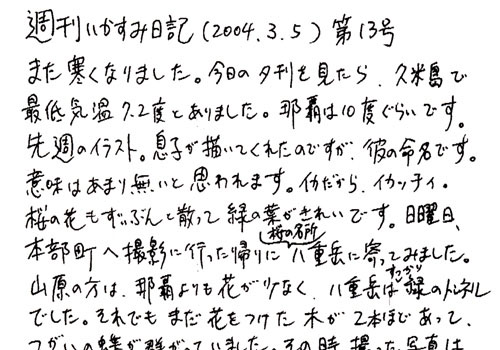 週刊いかすみ日記(2004.3.5)第13号
また寒くなりました。今日の夕刊を見たら、久米島で
最低気温7.2度とありました。那覇は10度ぐらいです。
先週のイラスト。息子が描いてくれたのですが、彼の命名です。
意味はあまり無いと思われます。イカだから、イカッチィ。
桜の花もずいぶんと散って緑の葉がきれいです。日曜日、
本部町へ撮影に行った帰りに八重岳に寄ってみました。
桜の名所
山原の方は、那覇よりも花が少なく、八重岳は緑のトンネル
すっかり
でした。それでもまだ花をつけた木が2本ほどあって、
つがいの蝶が群がっていました。その時撮った写真は